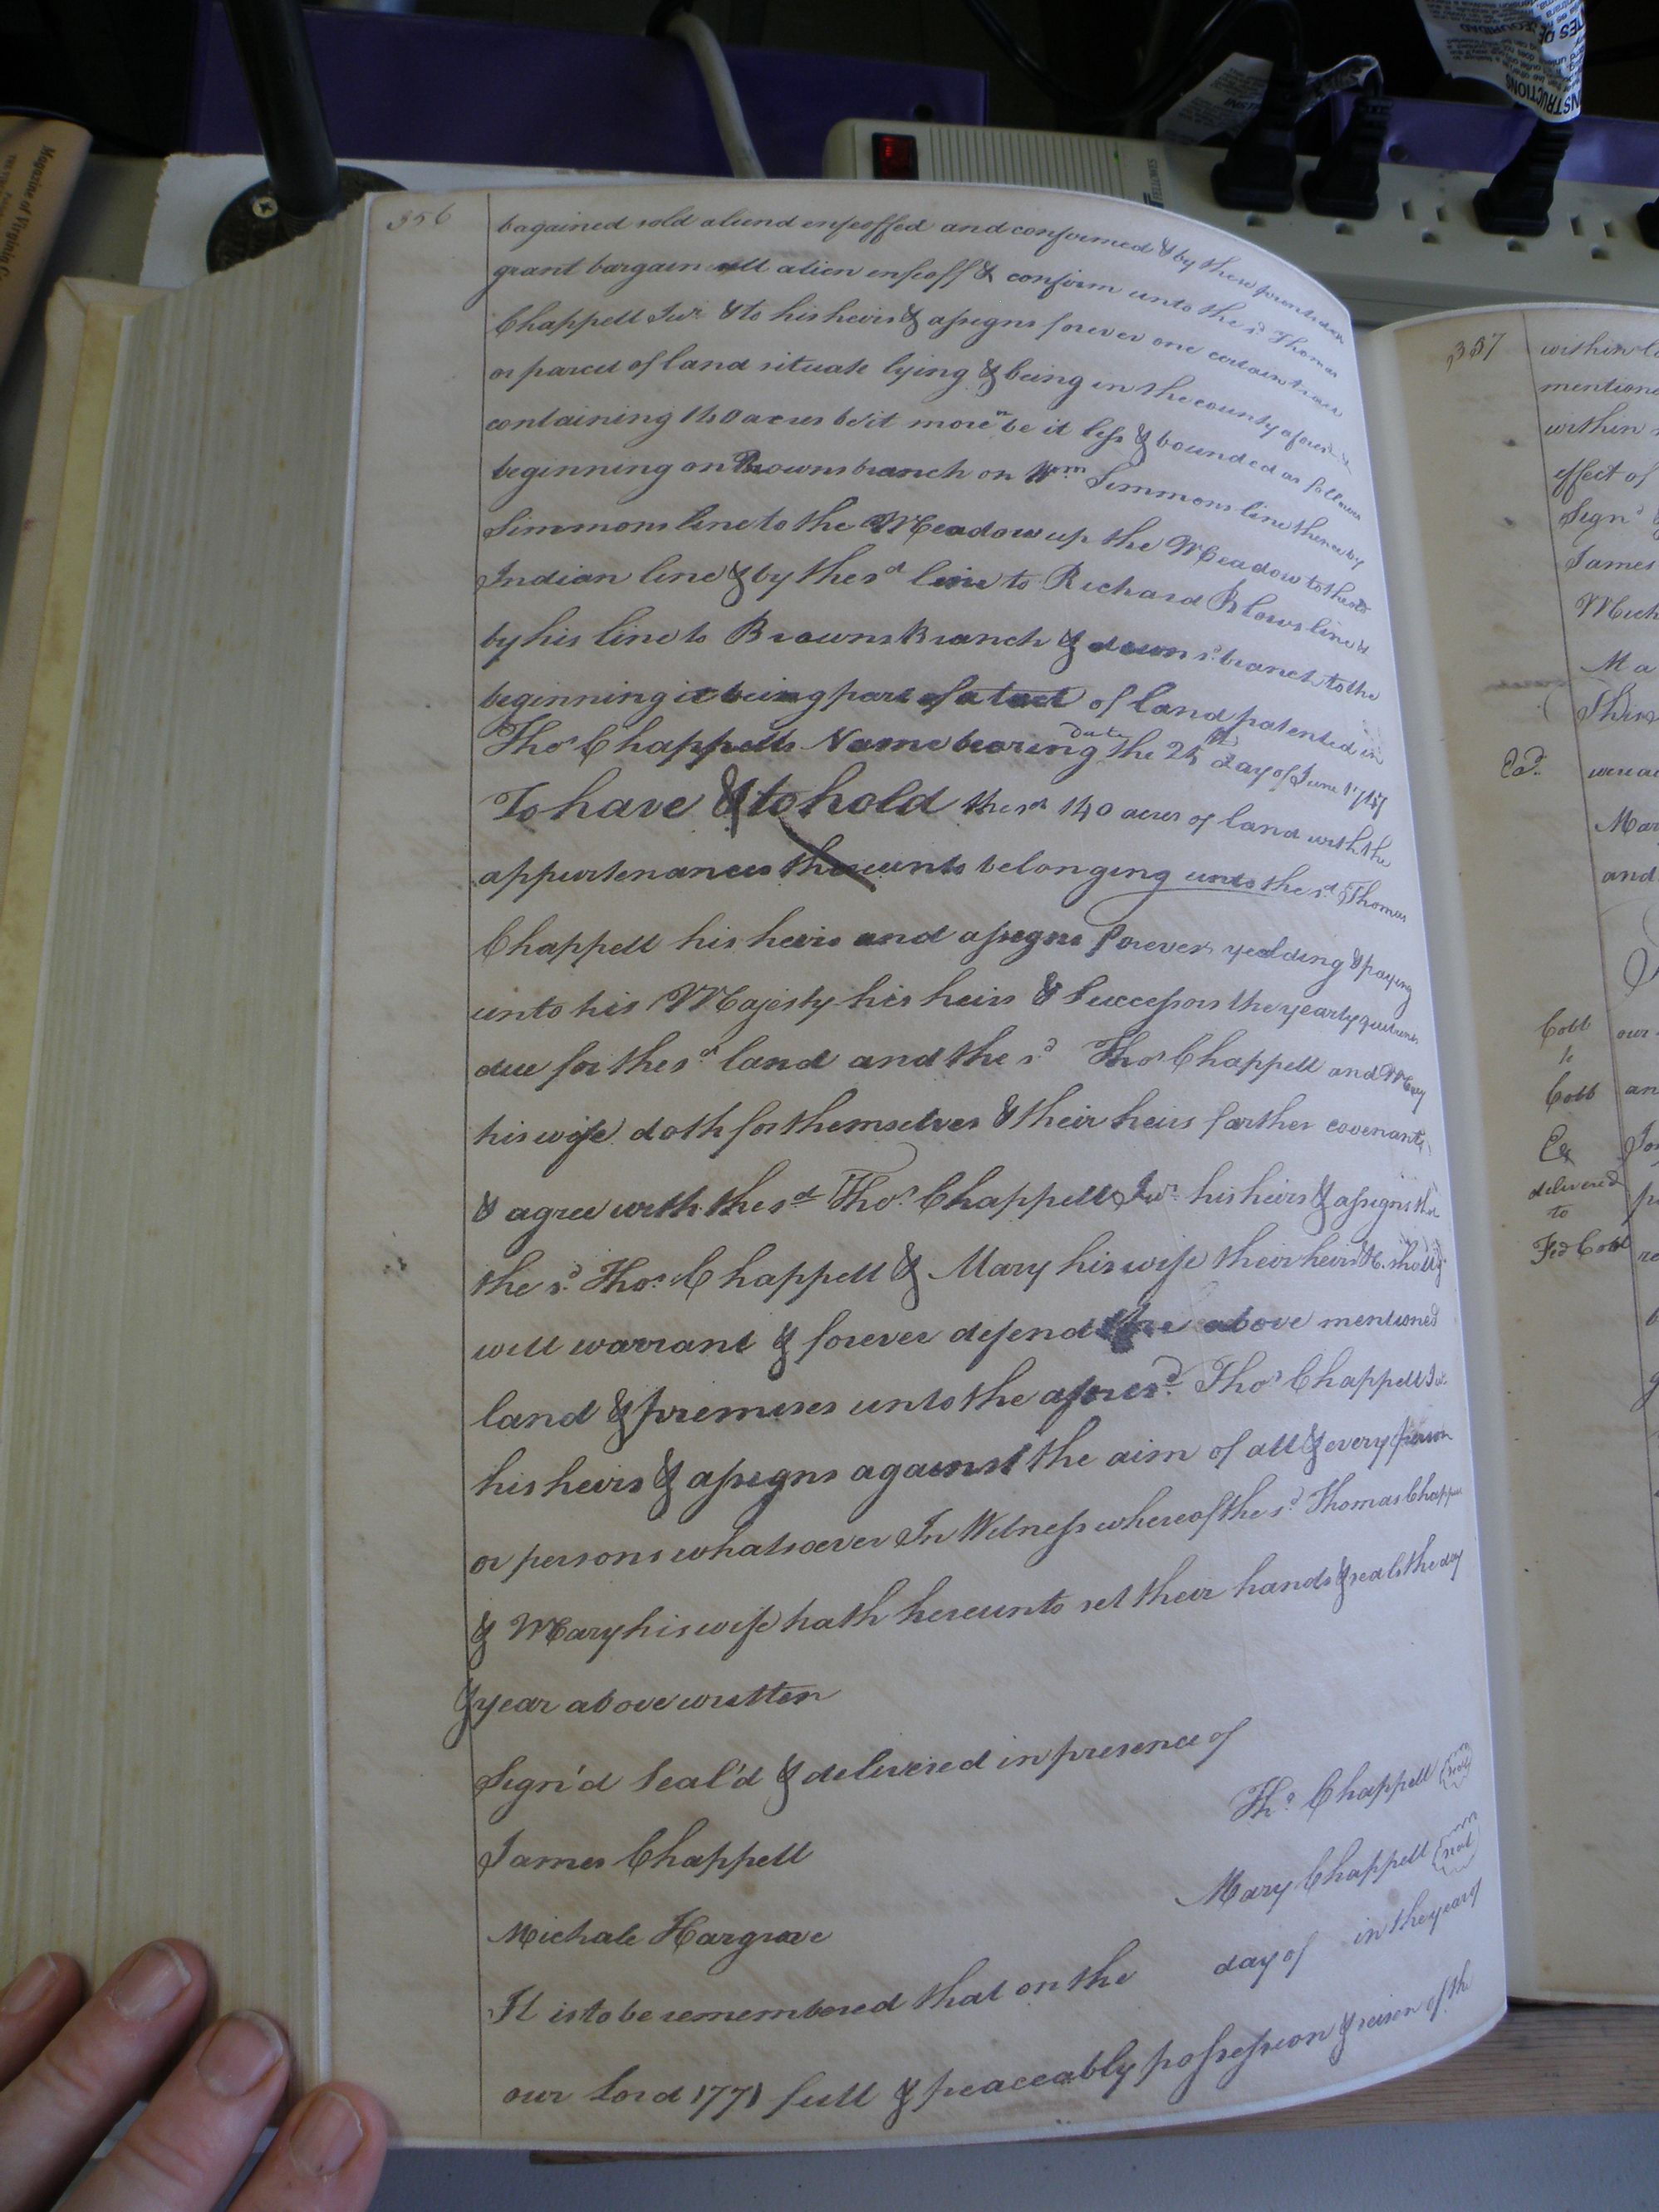 356
bagained sold aliend enfeoffed and confirmed & by these presents doth
grant bargain sell alien enfeoff & confirm unto the sd. Thomas
Chappell Junr. & to his heirs & assigns forever one certain tract
or parcel of land situate lying & being in the county aforesd.
containing 140 acres be it more or be it less & bounded as follows
beginning on Browns branch on Wm. Simmons line thence by
Simmons line to the Meadow up the Meadow to the old
Indian line & by the sd line to Richard Blows line &
by his line to Browns Branch & down sd. branch to the
beginning it being part of a tract of land patented in
Thos Chappells Name bearing date the 25th day of June 1747
To have & to hold the sd 140 acres of land with the
appurtenances thereunto belonging unto the sd. Thomas
Chappell his heirs and assigns forever yealding & paying
unto his Majesty his heirs & Successors the yearly quitrents
due for the sd. land and the sd. Thos Chappell and Mary
his wife doth for themselves & their heirs farther covenant
& agree with the sd Thos. Chappell Junr. his heirs & assigns that
the sd. Thos. Chappell & Mary his wife their heirs &c. shall &
will warrant & forever defend the above mentioned
land & premises unto the aforesd. Thos Chappell Jur.
his heirs & assigns against the aim of all & every person
or persons whatsoever In Witness whereof the sd. Thomas Chappell
& Mary his wife hath hereunto set their hands & seals the day
& year above written
Sign'd Seal'd & delivered in presence of
Thos. Chappell seal
James Chappell
Mary Chappell seal
Michale Hargrave
It is to be remembered that on the day of in the year of
our Lord 1771 full & peaceably possession & seison of th
337
within
mentione
within
effect of
Sign'd
James
Mich
Ma
This
Exd.
were a
Mar
and
Cobb our
to
Cobb an
Ex
delivered
to
Fed Cobb re
Magazine of Virginia
FELLOWES
INSTRUCTIONS